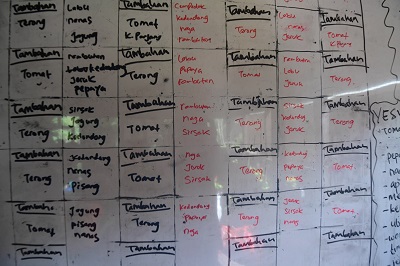 Tambahan
Terong
Labu
nanas
Jagung
Tambahan
Tomat
K. Panjang
Kedondong
naga
Rambutan
Tambahan
Terong
Labu
nanas
Jeruk
Tambahan
Tomat
K. Panjang
Tambahan
Tomat
Rambutan
Jeruk
Pepaya
Tambahan
Terong
Labu
Pepaya
Tambahan
Tomat
Rambutan
Labu
Jeruk
Tambahan
Terong
Tambahan
Terong
Sirsak
Jagung
Kedondong
Tambahan
Tomat
Rambutan
naga
Sirsak
Tambahan
Terong
Sirsak
Kedondong
Jeruk
Tambahan
Terong
Tambahan
Terong
Kedondong
nanas
Pisang
Tambahan
Tomat
naga
Jeruk
Sirsak
Tambahan
Terong
Kedondong
Pepaya
nanas
Tambahan
Tomat
Tambahan
Tomat
Jagung
Pisang
nanas
Tambahan
Terong
Kedondong
Pepaya
naga
Tambahan
Terong
Jeruk
Sirsak
nanas
Tambahan
Tomat
Tambahan
Tambahan
Tambahan